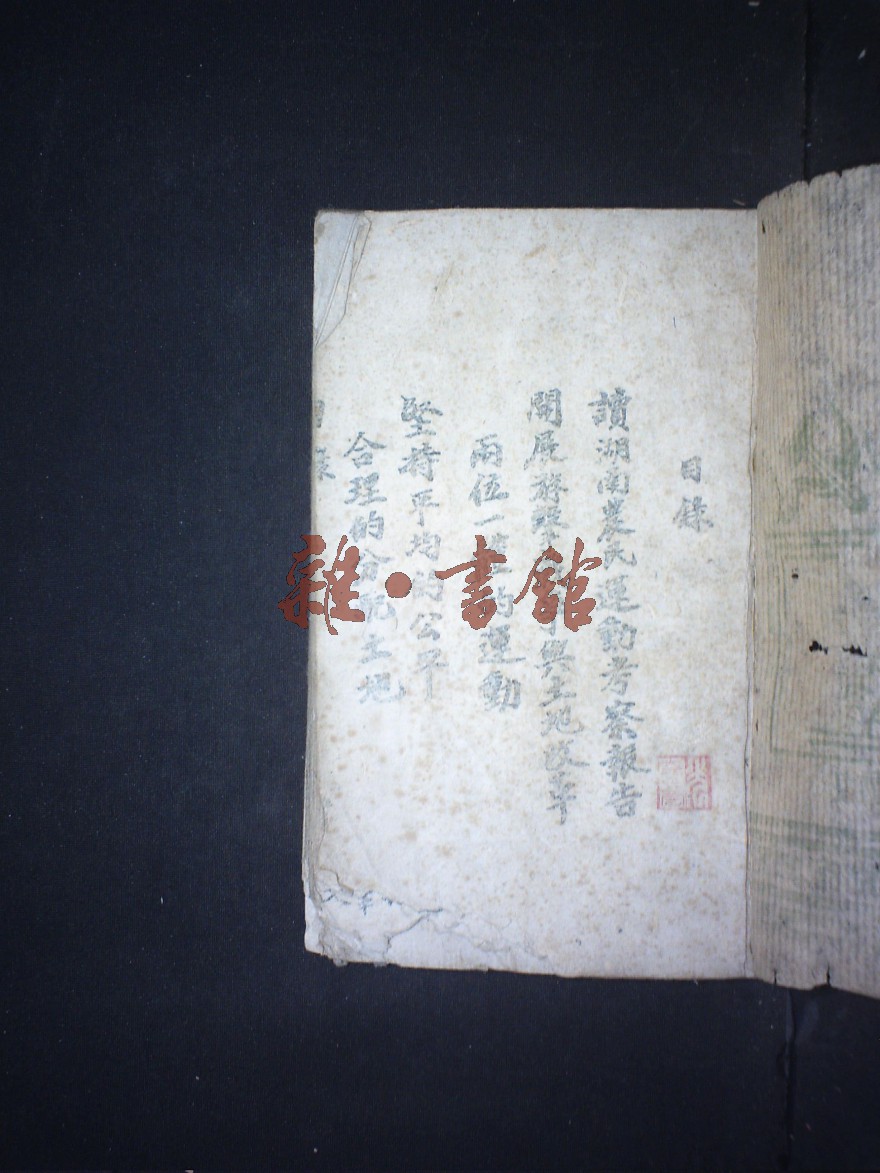 目錄
讀湖南農民運動考察報告
開展 與土地改革
兩伍一 的運動
堅持平均的公平
合理的分配土地
目錄
雜·書館